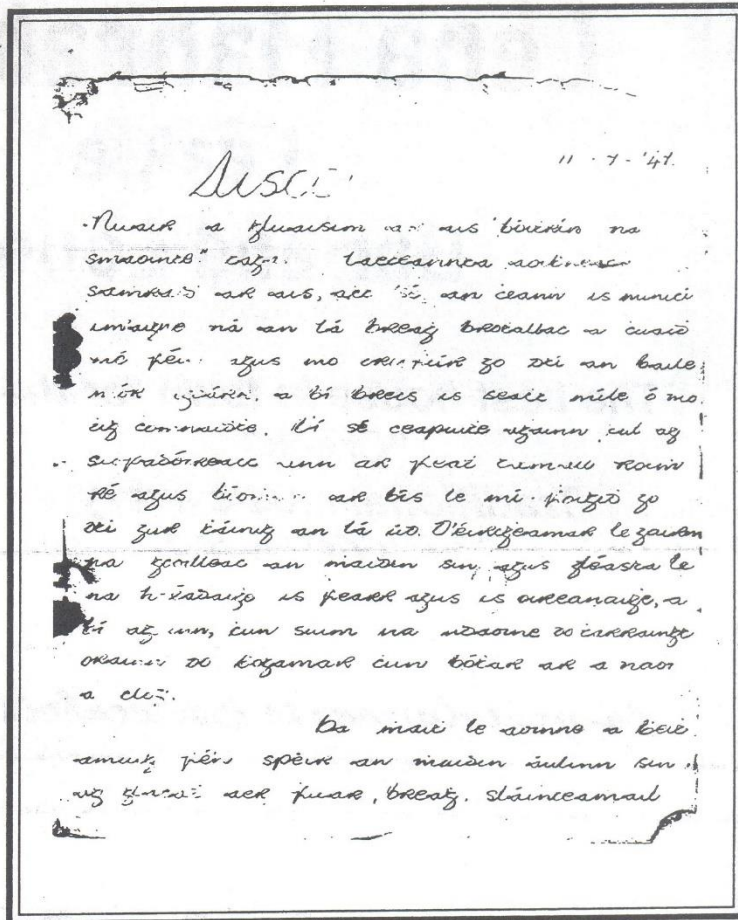 11-7-'41
Nuair a gluaisim ar ais bóitrín na
smaointe
samraid ar ais, act 'sé an ceann is minici
im'aigne ná an lá breag brotallac a cuaid
mé féin agus mo go dti an baile
mór a bí breis is seact míle ó mo
tig comnuidte. Bí sé ceapuite againn cul ag
ar fead tamuill roim
ré agus ar bís le mí foigid go
dti gur táinig an lá úd. D'éirigeamar le gairm
na gcoilleac an maidin sin agus gléasta le
na h-éadaige is fearr agus is aireanaige, a
bí ag inn, cun suim na ndaoine do tarraingt
orainn do togamar cun bótar ar a naoi
a clog.
Ba mait le aoinne a beit
amuig fén spéir an maidin áluinn sin
ag aer fuar, breag, sláinteamail